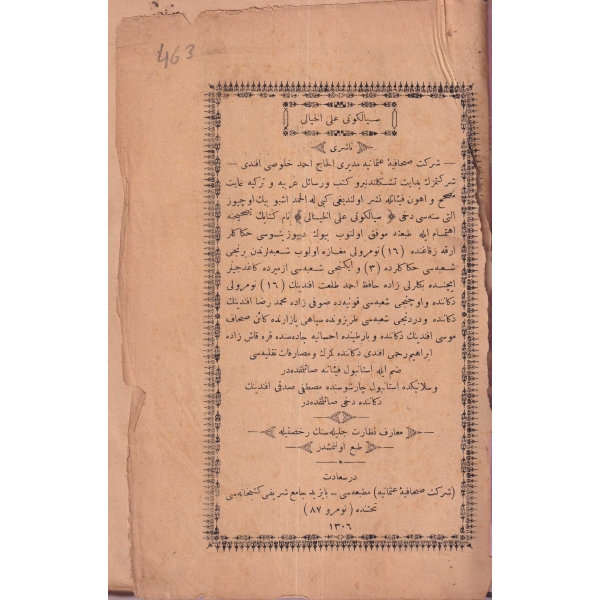 463
سیالکوتی علی الخیالی
ناشری
شرکت صحافیهٔ عثمانیه مدیری الحاج احمد خلوصی افندی
شرکتمزك بدایت تشکلندنبرو کتب ورسائل عربیه و ترکیه غایت
مصحح و اهون فیئاتله نشر اولندیغی کبی له الحمد اشبو بیك اوچیوز
التی سنه سی دخی ﴿ سیالکوتی علی الخیالی ﴾ نام کتابك تصحیحنه
اهتمام ایله طبعنه موفق اولنوب بیوك دیپوزیتوسی حکاکلر
ارقه زقاغنده (١٦) نومرولی مغازه اولوب شعبه لرندن برنجی
شعبه سی حکاکلرده (٣) و ایکنجی شعبه سی ازمیرده کاغدجیلر
ایچنده بکلرلی زاده حافظ احمد طلعت افندینك (١٦) نومرولی
دکاننده و اوچنجی شعبه سی قونیه ده صوفی زاده محمد رضا افندینك
دکاننده و دردنجی شعبه سی طربزونده سپاهی بازارنده کائن صحاف
موسی افندینك دکاننده و بارطینده احسانیه جاده سنده قره قاش زاده
ابراهیم رحمی افندی دکاننده کمرك و مصارفات نقلیه سی
ضم ایله استانبول فیئاتنه صاتلمقده در
و سلانیکده استانبول چارشوسنده مصطفی صدقی افندینك
دکاننده دخی صاتلمقده در
معارف نظارت جلیله سنك رخصتیله
طبع اولنمشدر
در سعادت
(شرکت صحافیهٔ عثمانیه) مطبعه سی ــ بایزید جامع شریفی کتبخانه سی
تحتنده (نومرو ٨٧)
١٣٠٦